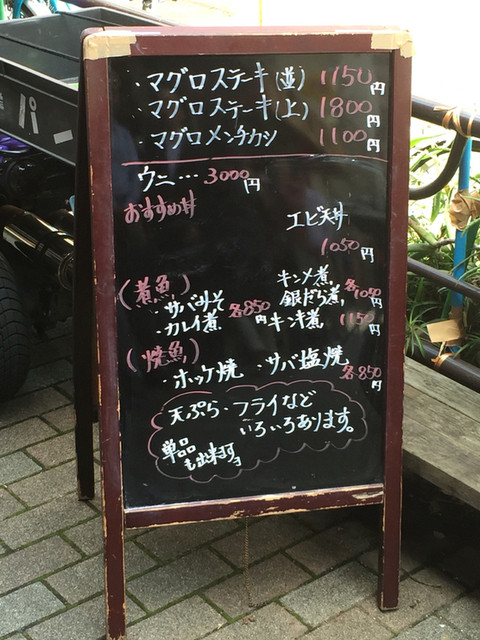 ・マグロステーキ(並) 1150円
・マグロステーキ(上) 1800円
・マグロメンチカツ 1100円
ウニ… 3000円
おすすめ丼
エビ天丼
1050円
(煮魚)
・サバみそ
・カレイ煮 各850円
キンメ煮,
銀だら煮, 各1050円
キンキ煮 1150円
(焼魚)
・ホッケ焼 ・サバ塩焼
各850円
天ぷら・フライなど
いろいろあります。
単品
も出来ますヨ